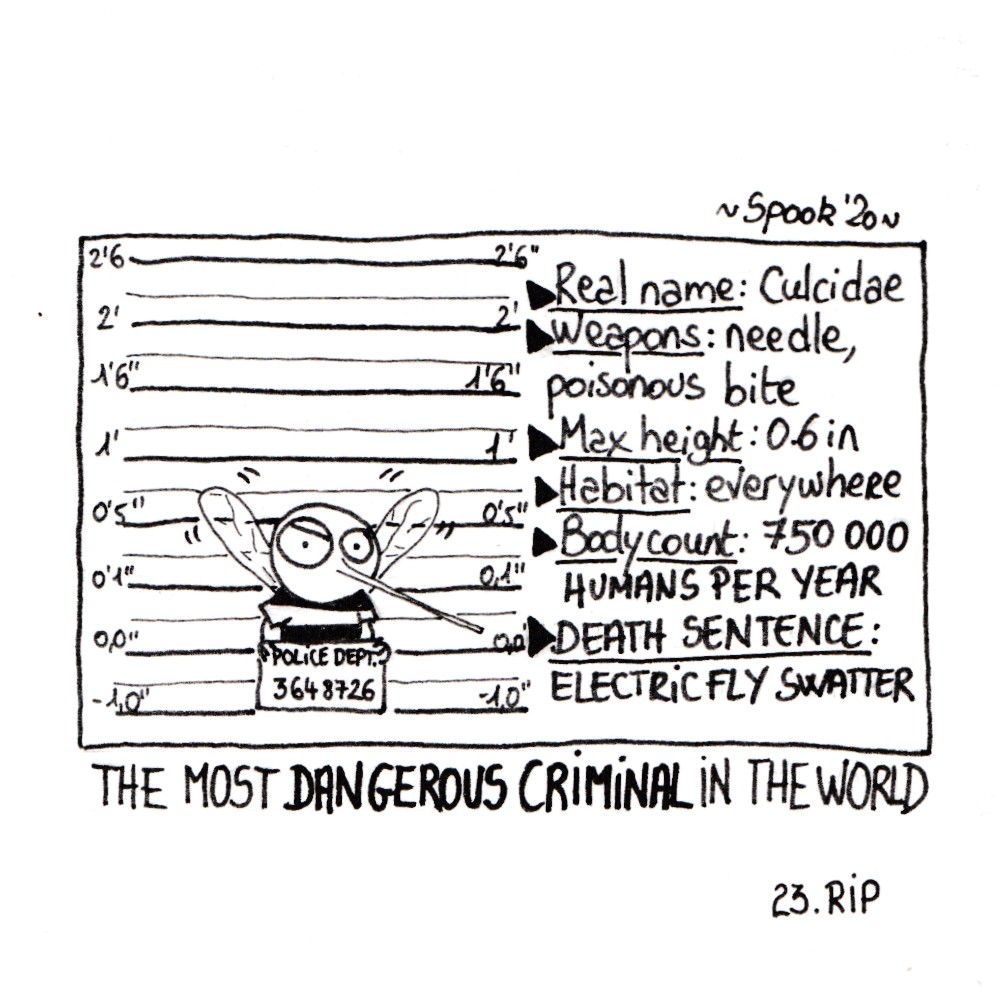 ~Spook '20~
2'6 2'6"
2' 2'
1'6" 1'6"
1' 1'
0'5" 0'5"
0'1" 0,1"
0,0" 0,0"
-1,0" -1,0"
POLiCE DEPT.
3648726
Real name: Culcidae
Weapons: needle,
poisonous bite
Max height: 0.6 in
Habitat: everywhere
Bodycount: 750 000
HUMANS PER YEAR
DEATH SENTENCE:
ELECTRiC FLY SWATTER
THE MOST DANGEROUS CRiMiNAL iN THE WORLD
23. RiP